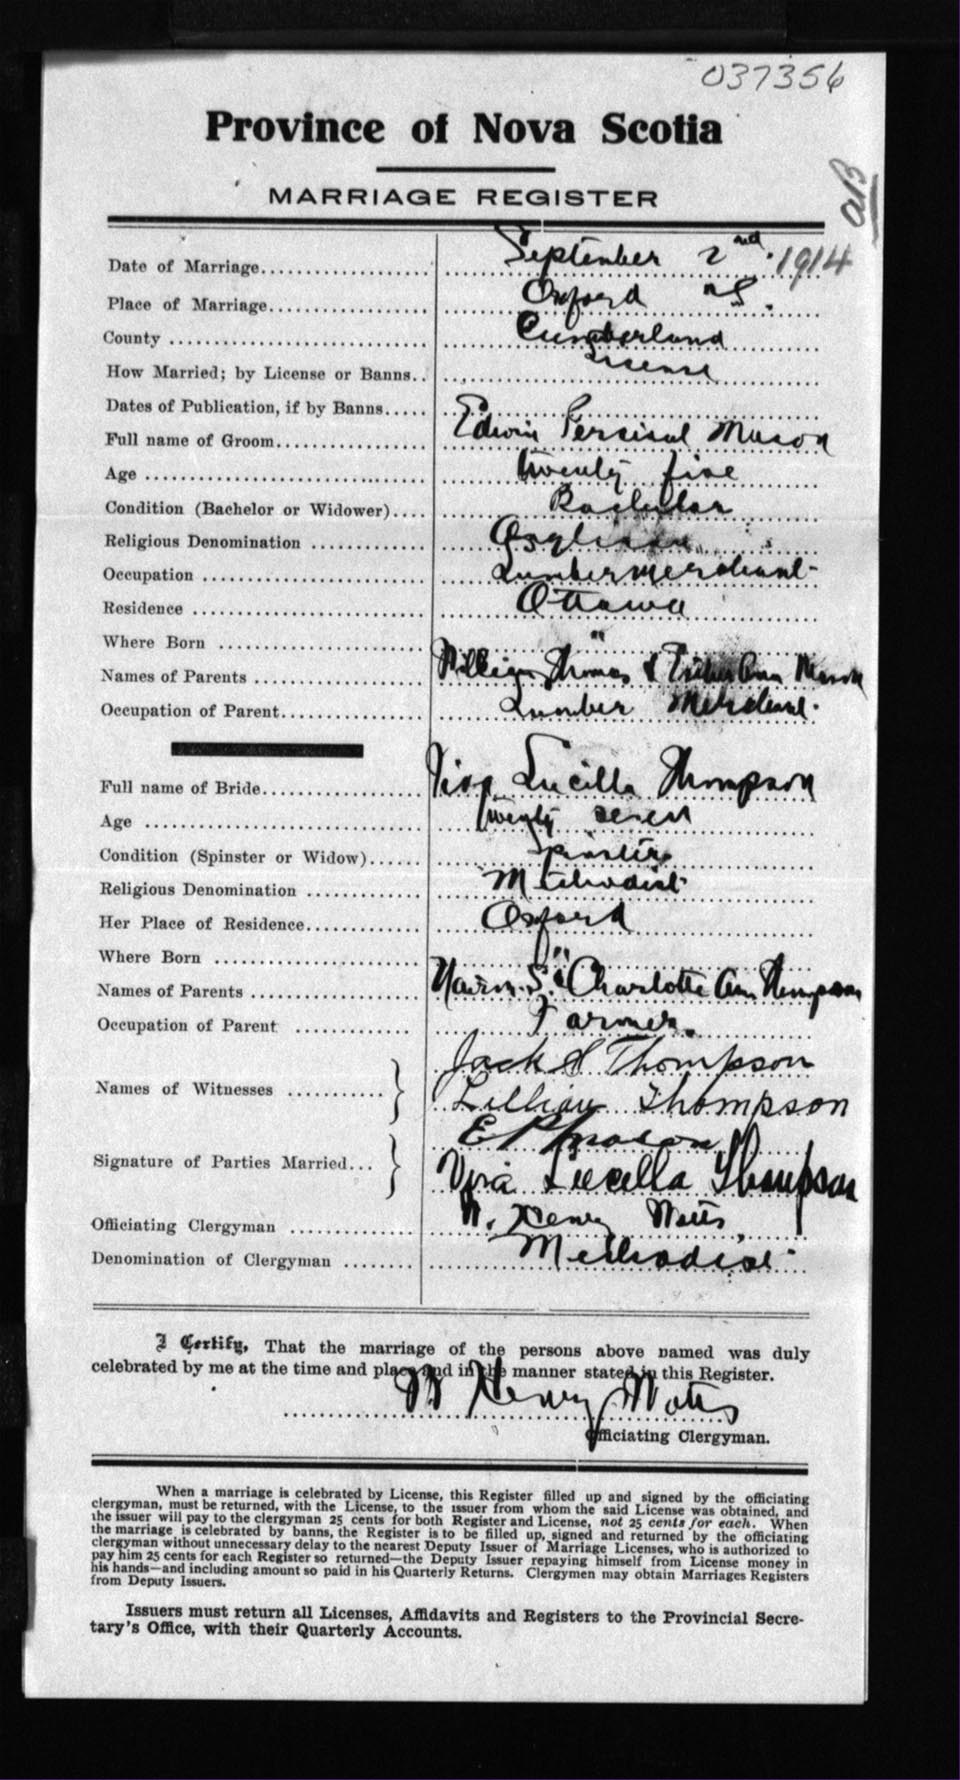 037356
Province of Nova Scotia
MARRIAGE REGISTER
Date of Marriage September 2nd 1914
Place of Marriage Oxford N.S.
County Cumberland
How Married; by License or Banns License
Dates of Publication, if by Banns
Full name of Groom Edwin Percival Mason
Age twenty five
Condition (Bachelor or Widower) Bachelor
Religious Denomination
Occupation Lumber merchant
Residence Ottawa
Where Born "
Names of Parents William Thomas & Ann Mason
Occupation of Parent Lumber Merchant.
Full name of Bride Lucilla Thompson
Age twenty seven
Condition (Spinster or Widow) Spinster
Religious Denomination Methodist
Her Place of Residence Oxford
Where Born "
Names of Parents Nairn S. & Charlotte Ann Thompson
Occupation of Parent Farmer.
Names of Witnesses Jack S Thompson
Lillian Thompson
Signature of Parties Married E P Mason
Vira Lucilla Thompson
Officiating Clergyman W. Henry Watts
Denomination of Clergyman Methodist
I Certify, That the marriage of the persons above named was duly
celebrated by me at the time and place and in the manner stated in this Register.
W Henry Watts
Officiating Clergyman.
When a marriage is celebrated by License, this Register filled up and signed by the officiating
clergyman, must be returned, with the License, to the issuer from whom the said License was obtained, and
the issuer will pay to the clergyman 25 cents for both Register and License, not 25 cents for each. When
the marriage is celebrated by banns, the Register is to be filled up, signed and returned by the officiating
clergyman without unnecessary delay to the nearest Deputy Issuer of Marriage Licenses, who is authorized to
pay him 25 cents for each Register so returned—the Deputy Issuer repaying himself from License money in
his hands—and including amount so paid in his Quarterly Returns. Clergymen may obtain Marriages Registers
from Deputy Issuers.
Issuers must return all Licenses, Affidavits and Registers to the Provincial Secre-
tary's Office, with their Quarterly Accounts.